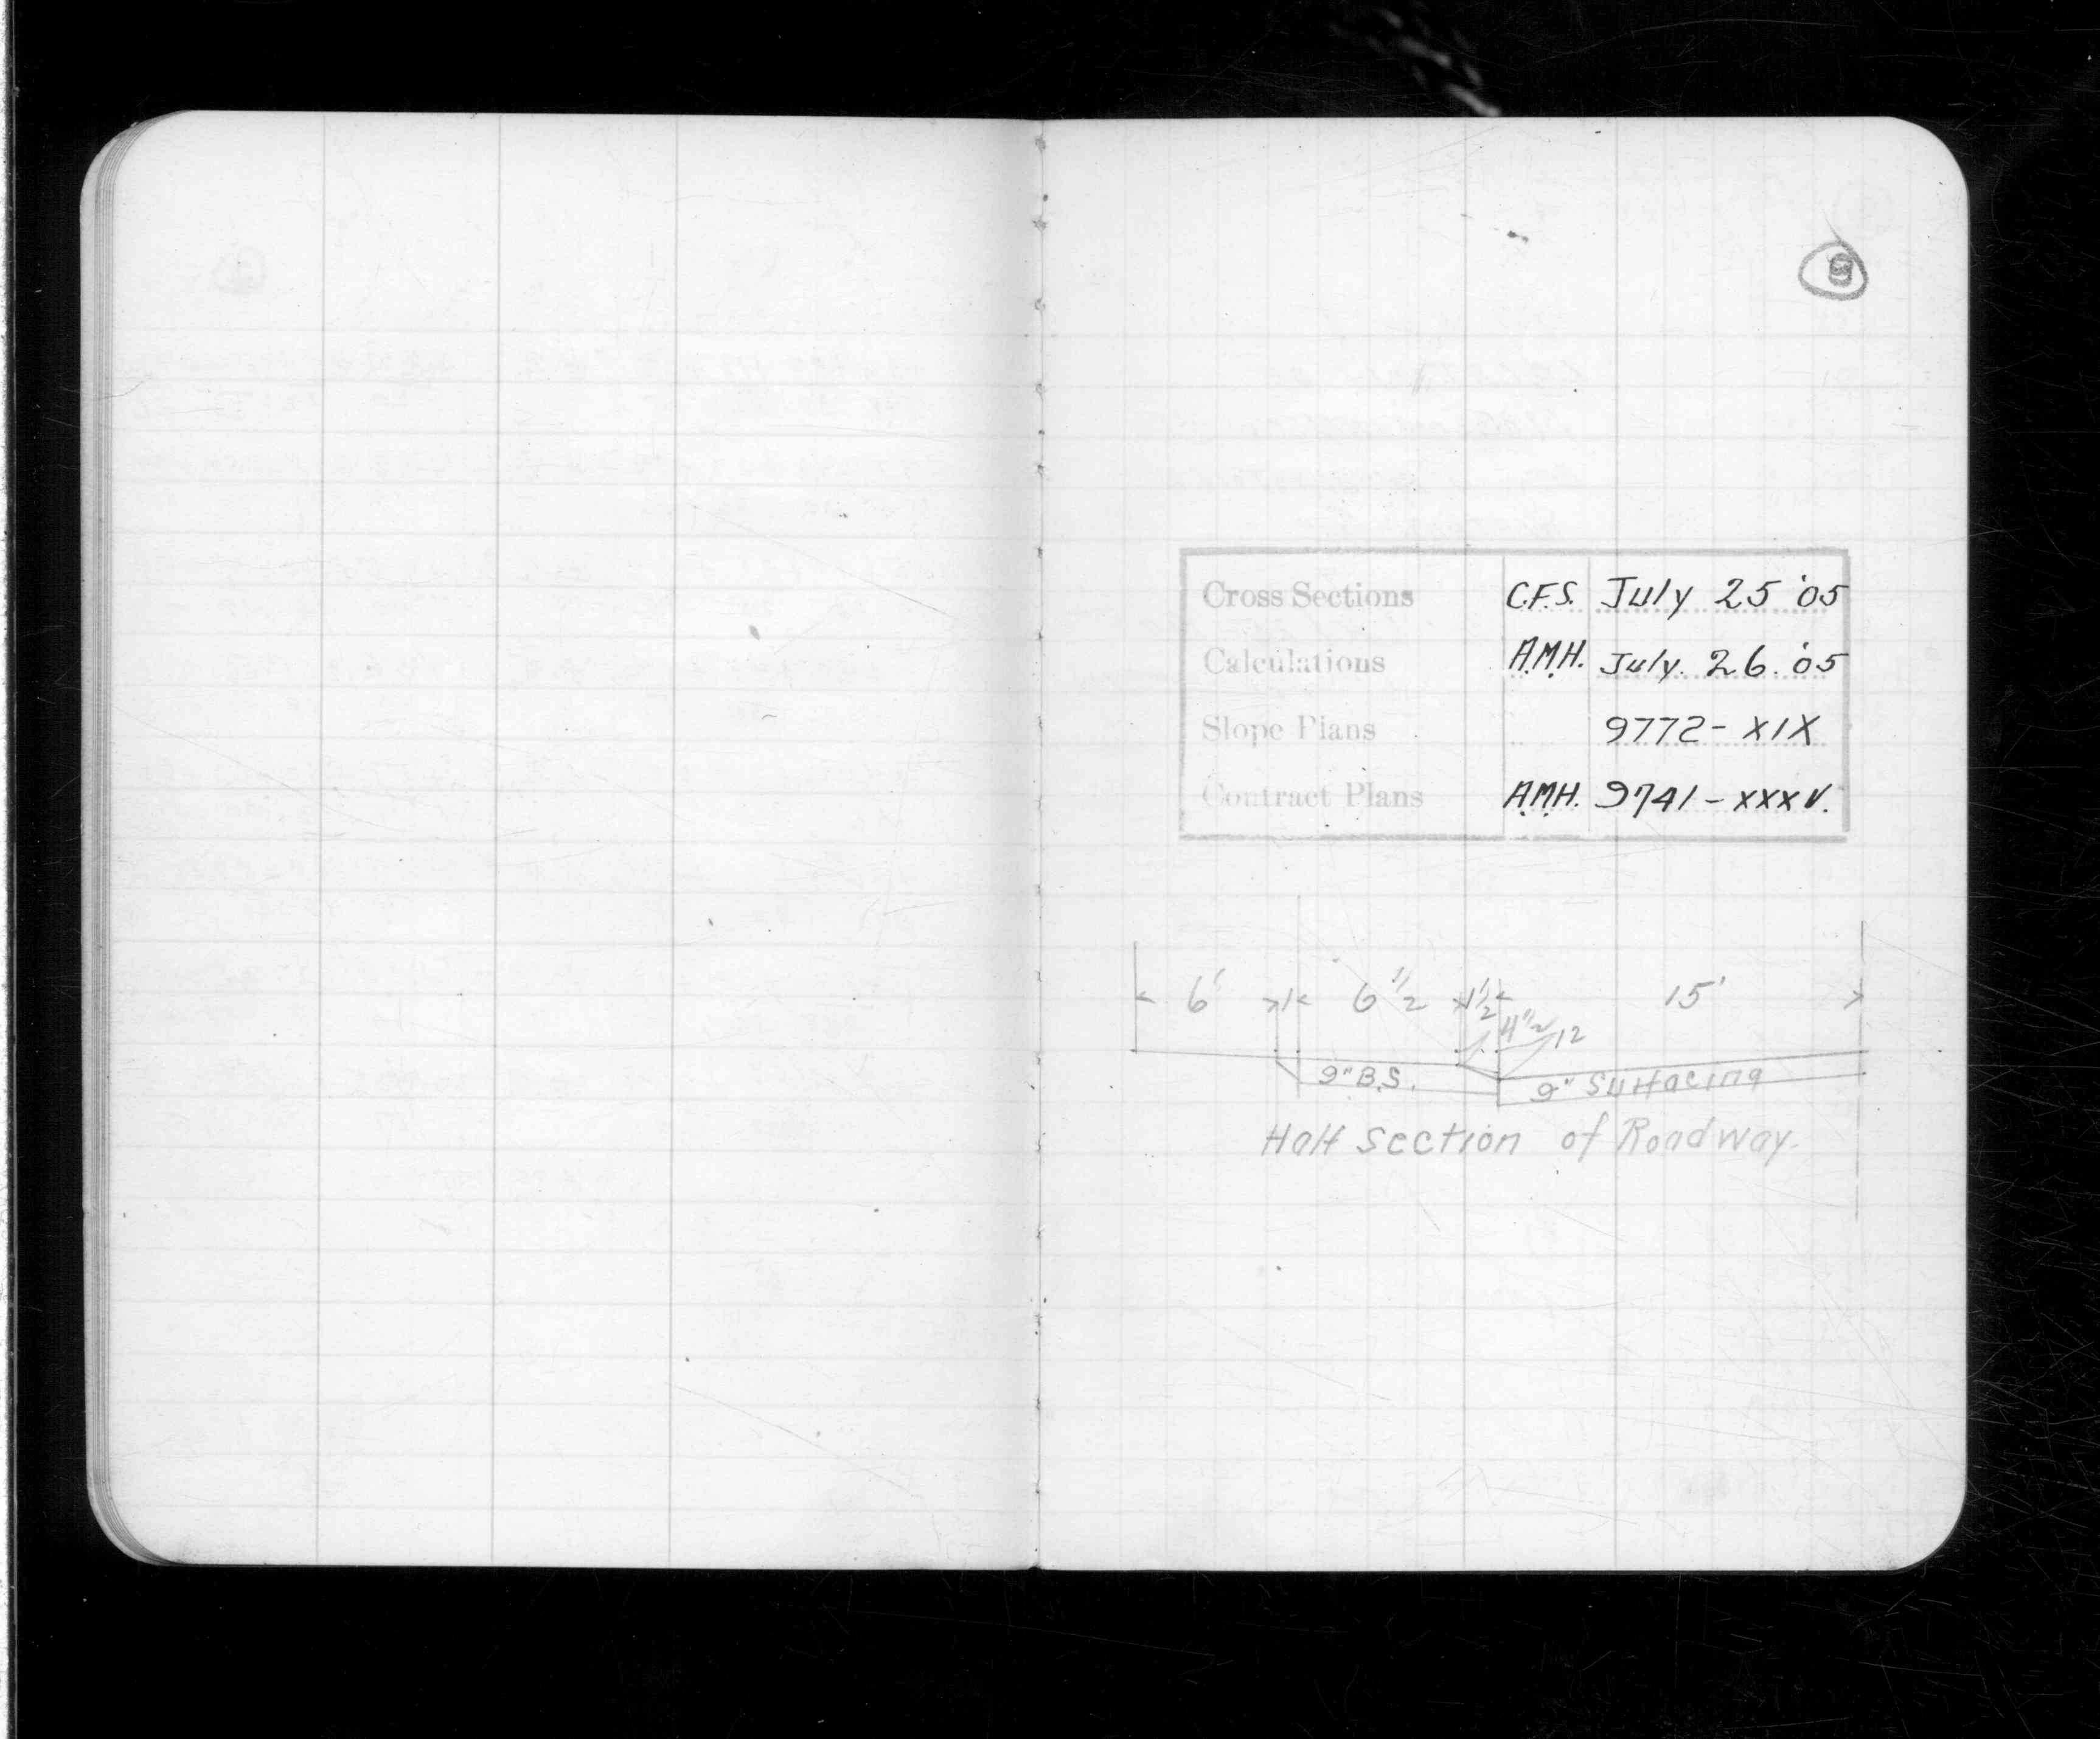 Cross Sections C.F.S. July 25 '05
Calculations A.M.H. July. 26. '05
Slope Plans 9772- XIX
Contract Plans A.M.H. 9741 - XXXV.
6' 6 1/2 1 1/2 15'
4 1/2 12
9" B.S. 9" Surfacing
Half Section of Roadway.